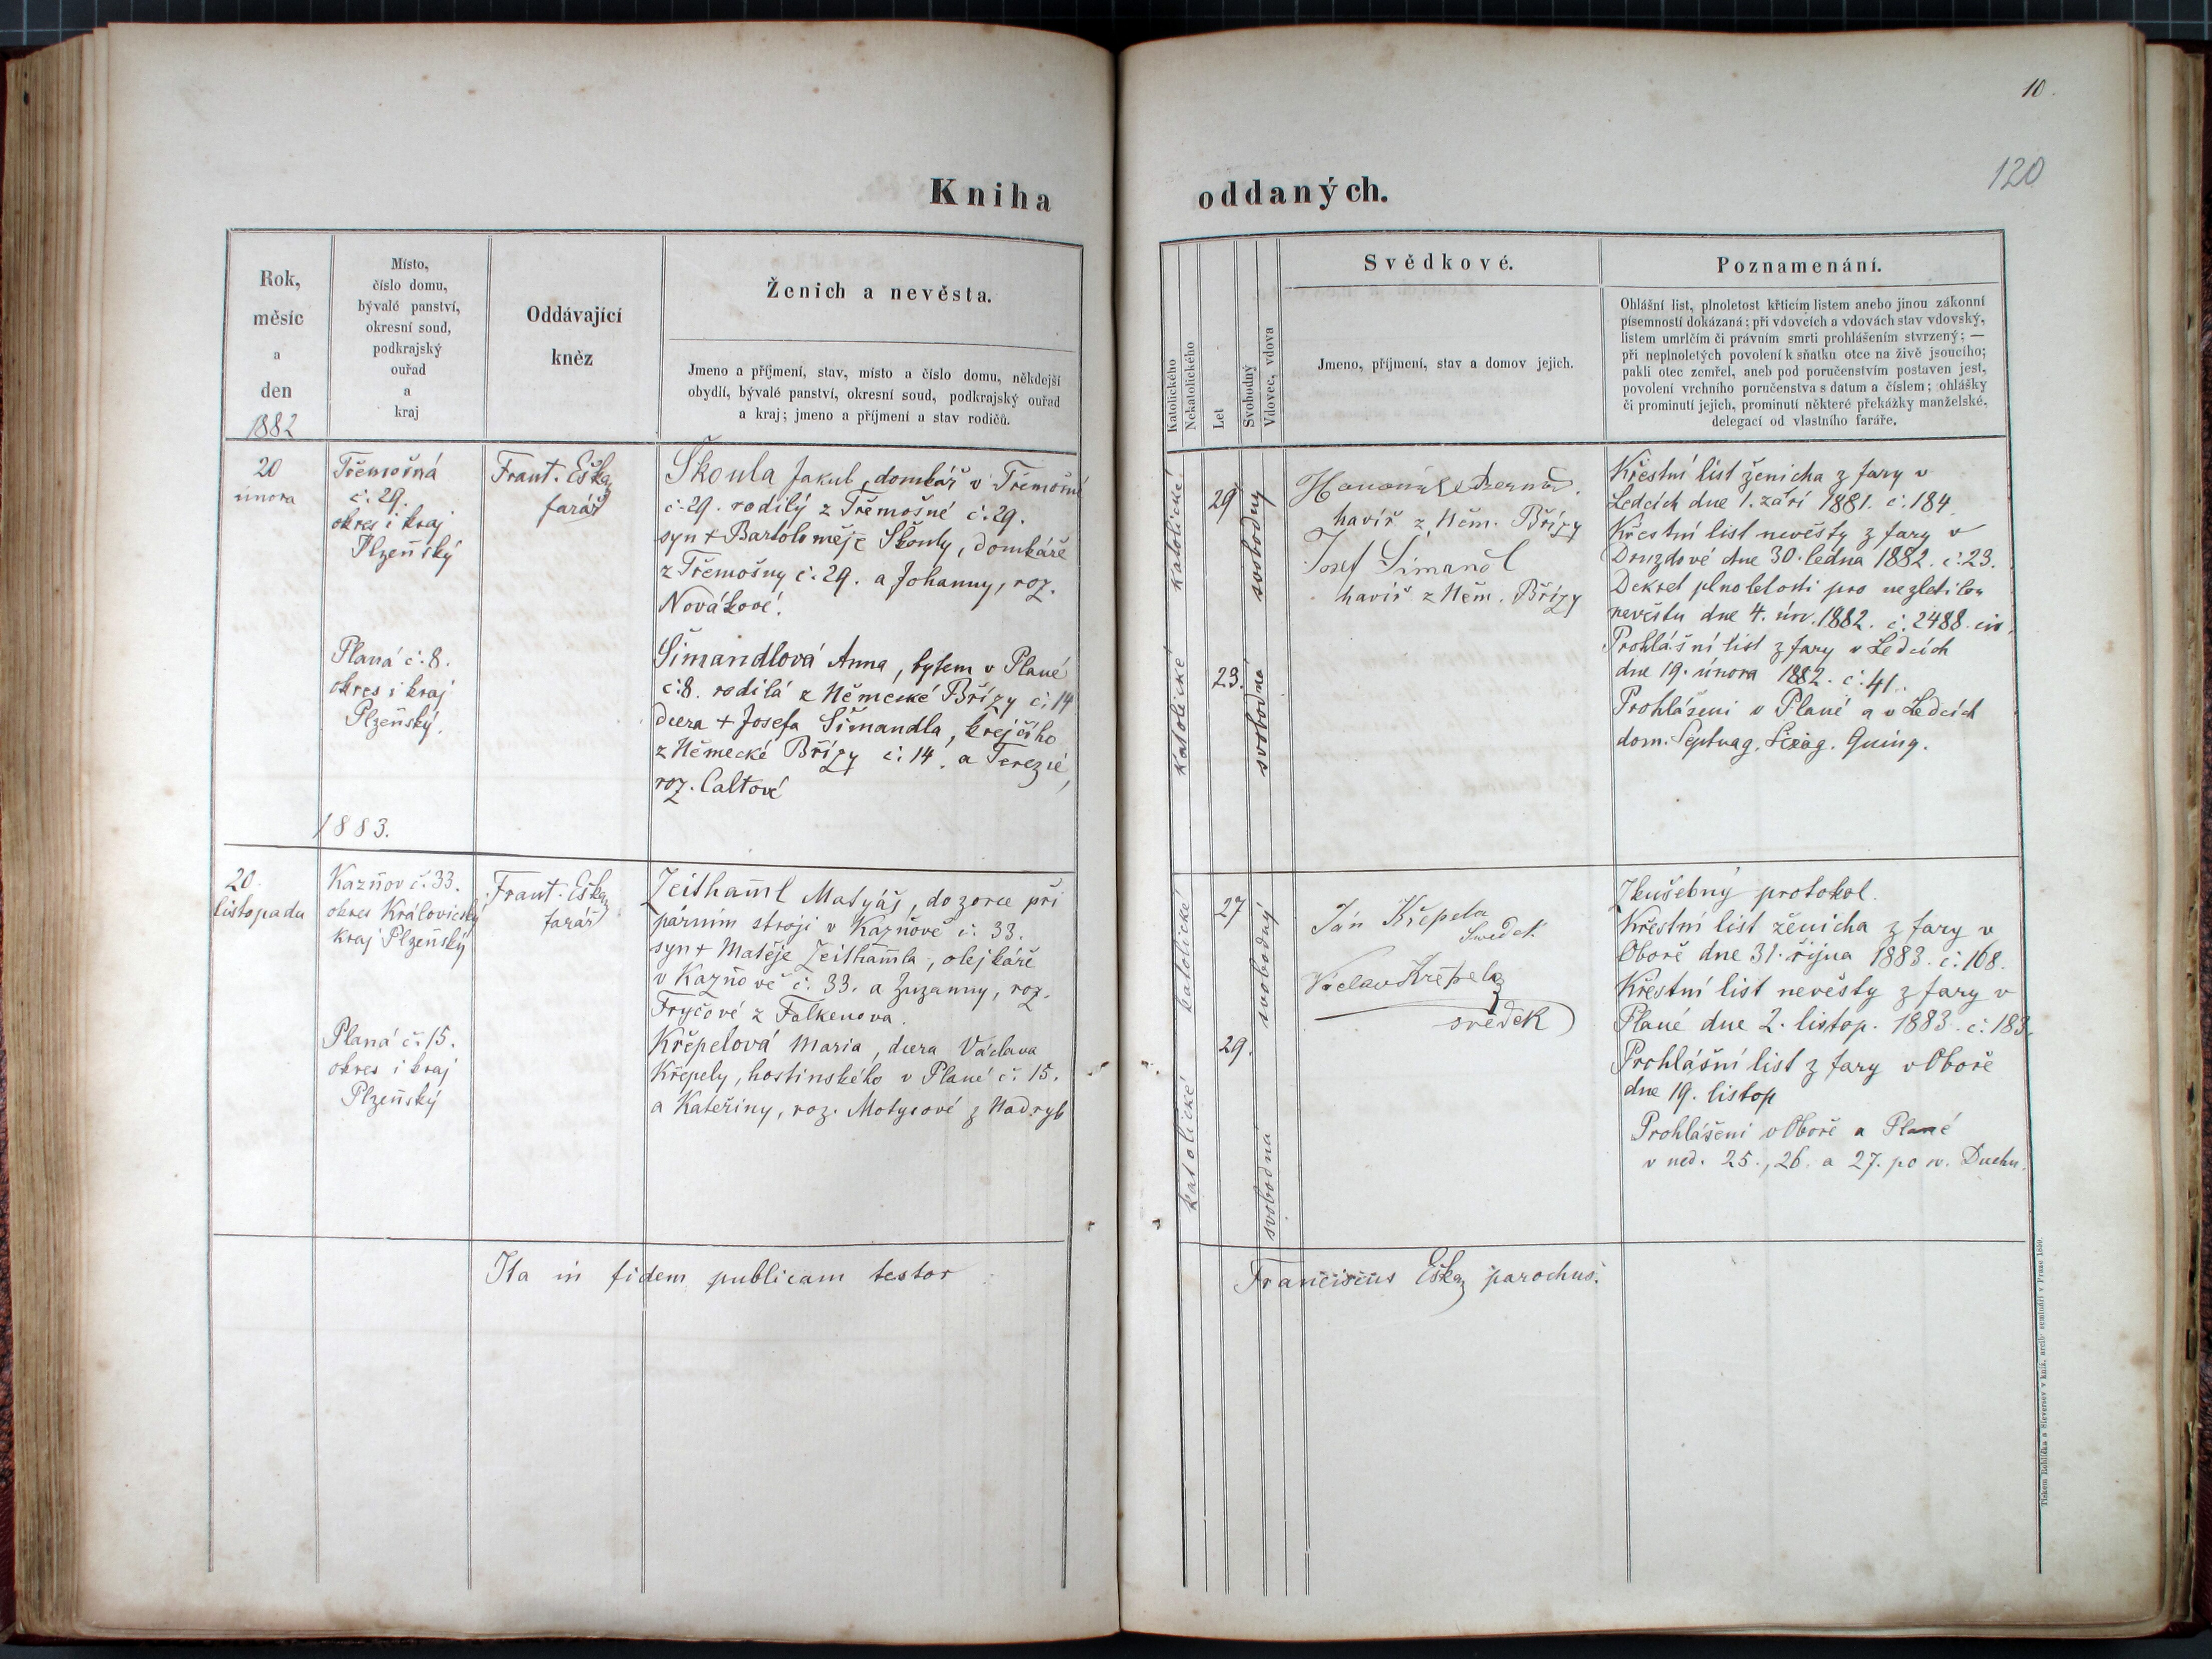 10.
120
Kniha oddaných.
Rok,
měsíc
a
den
1882
Místo,
číslo domu,
bývalé panství,
okresní soud,
podkrajský
ouřad
a
kraj
Oddávající
kněz
Ženich a nevěsta.
Jmeno a příjmení, stav, místo a číslo domu, někdejší
obydlí, bývalé panství, okresní soud, podkrajský ouřad
a kraj; jmeno a příjmení a stav rodičů.
Katolického
Nekatolického
Let
Svobodný
Vdovec, vdova
Svědkové.
Jmeno, příjmení, stav a domov jejich.
Poznamenání.
Ohlášní list, plnoletost křticím listem anebo jinou zákonní
písemností dokázaná; při vdovcích a vdovách stav vdovský,
listem umrlčím či právním smrti prohlášením stvrzený; —
při neplnoletých povolení k sňatku otce na živě jsoucího;
pakli otec zemřel, aneb pod poručenstvím postaven jest,
povolení vrchního poručenstva s datum a číslem; ohlášky
či prominutí jejich, prominutí některé překážky manželské,
delegací od vlastního faráře.
20
února
Třemošná
č. 29.
okres i kraj
Plzeňský
Frant. Eška
farář
Škoula Jakub, domkář v Třemošné
č. 29. rodilý z Třemošné č. 29.
syn + Bartoloměje Škouly, domkáře
z Třemošny č. 29. a Johanny, roz.
Novákové.
Planá č. 8.
okres i kraj
Plzeňský.
Šimandlová Anna, bytem v Plané
č. 8. rodilá z Německé Břízy č. 14
dcera + Josefa Šimandla, krejčího
z Německé Břízy č. 14. a Terezie,
roz. Caltové
katolické
29
svobodný
katolické
23.
svobodná
havíř z Něm. Břízy
Josef Šimandl
havíř z Něm. Břízy
Křestní list ženicha z fary v
Ledcích dne 1. září 1881. č. 184.
Křestní list nevěsty z fary v
Druzdové dne 30. ledna 1882. č. 23.
Dekret plnoletosti pro nezletilou
nevěstu dne 4. ún. 1882. č. 2488. civ.
Prohlášní list z fary v Ledcích
dne 19. února 1882. č. 41.
Prohlášeni v Plané a v Ledcích
dom. Septuag. Sexag. Quinq.
1883.
20.
listopadu
Kazňov č. 33.
okres Královický
kraj Plzeňský
Frant. Eška
farář
Zeithaml Matyáš, dozorce při
parním stroji v Kazňově č. 33.
syn + Matěje Zeithamla, olejkáře
v Kazňově č. 33. a Zuzanny, roz.
Fryčové z Falkenova.
Planá č. 15.
okres i kraj
Plzeňský
Křepelová Maria, dcera Václava
Křepely, hostinského v Plané č. 15.
a Kateřiny, roz. Motysové z Nadryb
katolické
27
svobodný
katolické
29.
svobodná
Jan Křepela
Swedek
Václav Křepela
svědek
Zkušebný protokol.
Křestní list ženicha z fary v
Oboře dne 31. října 1883. č. 168.
Křestní list nevěsty z fary v
Plané dne 2. listop. 1883. č. 183.
Prohlášní list z fary v Oboře
dne 19. listop
Prohlášeni v Oboře a Plané
v ned. 25., 26. a 27. po sv. Duchu.
Ita in fidem publicam testor Franciscus Eška parochus.